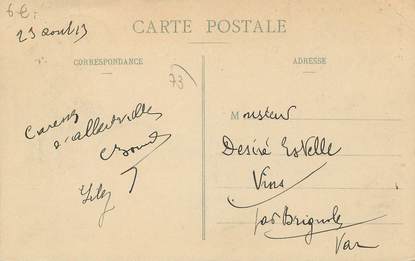 23 août 13
CARTE POSTALE
CORRESPONDANCE
ADRESSE
73
d'albertville
Monsieur
Desiré Estelle
Vins
par Brignoles
Var